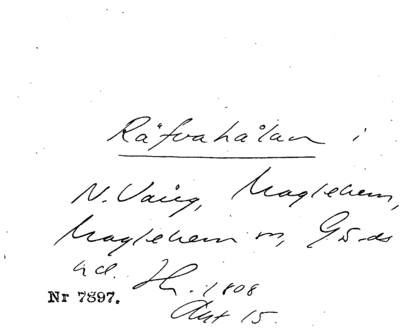 Räfvahålan i
N. Vång, Maglehem,
Maglehem sn, Gärds
hd. Sk. 1808
Akt 15.
Nr 7897.